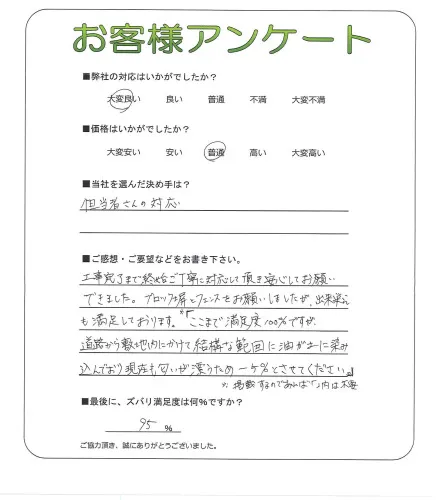 お客様アンケート
■弊社の対応はいかがでしたか?
大変良い 良い 普通 不満 大変不満
■価格はいかがでしたか?
大変安い 安い 普通 高い 大変高い
■当社を選んだ決め手は?
担当者さんの対応
■ご感想・ご要望などをお書き下さい。
工事完了まで終始ご丁寧に対応して頂き安心してお願い
できました。ブロック塀とフェンスをお願いしましたが、出来栄え
も満足しております。※「ここまで満足度100%ですが、
道路から敷地内にかけて結構な範囲に油がおに染み
込んでおり現在も匂いが漂うため−5%とさせてください。」
※掲載するのであれば「」内は不要
■最後に、ズバリ満足度は何%ですか?
95 %
ご協力頂き、誠にありがとうございました。